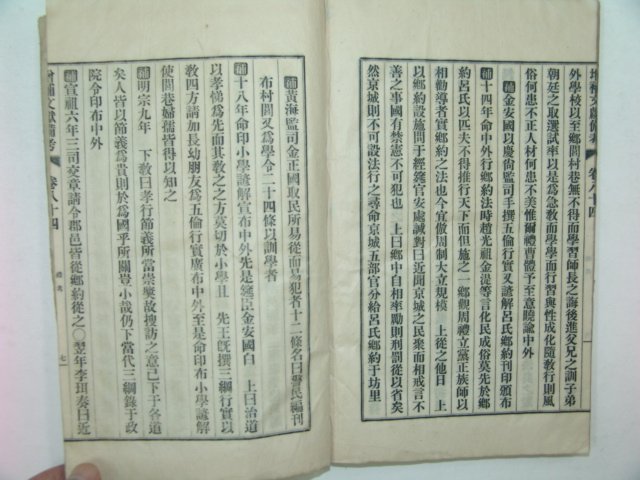 外學校以至鄉閭村巷無不得而學習師長之誨後進父兄之訓子弟
朝廷之取選試率以是爲急敎而學學而行習與性成化隨敎行則風
俗何患不正人材何患不美惟爾禮曹體予至意曉諭中外
補金安國以慶尙監司手撰五倫行實又諺解呂氏鄉約刊印頒布
補十四年命中外行鄉約法時趙光祖金湜等言化民成俗莫先於鄉
約呂氏以匹夫不得推行天下而但施之一鄉觀周禮立黨正族師以
相勸導者實鄉約之法也今宜倣周制大立規模 上從之他日 上
以鄉約設施問于經筵官安處諴對曰近聞京城之民聚而相戒言不
善之事國有禁憲不可犯也 上曰鄉中自相率勵則刑罰從以省矣
然京城則不可設法行之尋命京城五部官分給呂氏鄉約于坊里
增補文獻備考 卷八十四
補黃海監司金正國取民所易從而易犯者十二條名曰警民編刊
布村閭又爲學令二十四條以訓學者
十八年命印小學諺解宣布中外先是筵臣金安國白 上曰治道
以孝悌爲先而其敎之之方莫切於小學且 先王旣撰三綱行實以
敎四方請加長幼朋友爲五倫行實廣布中外至是命印布小學諺解
使閭巷婦孺皆得以知之
補明宗九年 下敎曰孝行節義所當崇奬故搜訪之意已下于各道
矣人皆以節義爲貴則於爲國乎所關豈小哉仍下當代三綱錄于政
院令印布中外
補宣祖六年三司交章請令郡邑皆從鄉約從之〇翌年李珥奏曰近
增補文獻備考 卷八十四 禮考 七